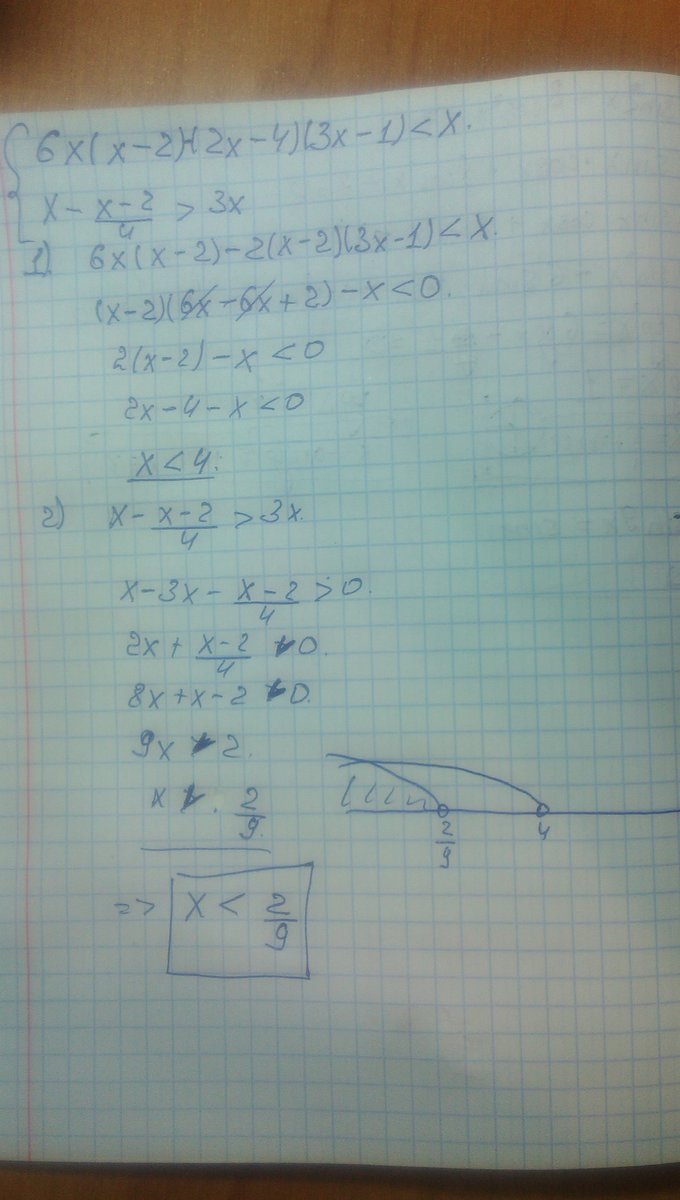 { 6x(x-2)-(2x-4)(3x-1)<x.
x - \frac{x-2}{4} > 3x
1) 6x(x-2)-2(x-2)(3x-1)<x.
(x-2)(6x-6x+2)-x<0.
2(x-2)-x<0
2x-4-x<0
x<4.
2) x - \frac{x-2}{4} > 3x.
x-3x - \frac{x-2}{4} > 0.
2x + \frac{x-2}{4} 0.
8x+x-2 0.
9x 2.
x \frac{2}{9}.
\frac{2}{9} 4
=> x < \frac{2}{9}